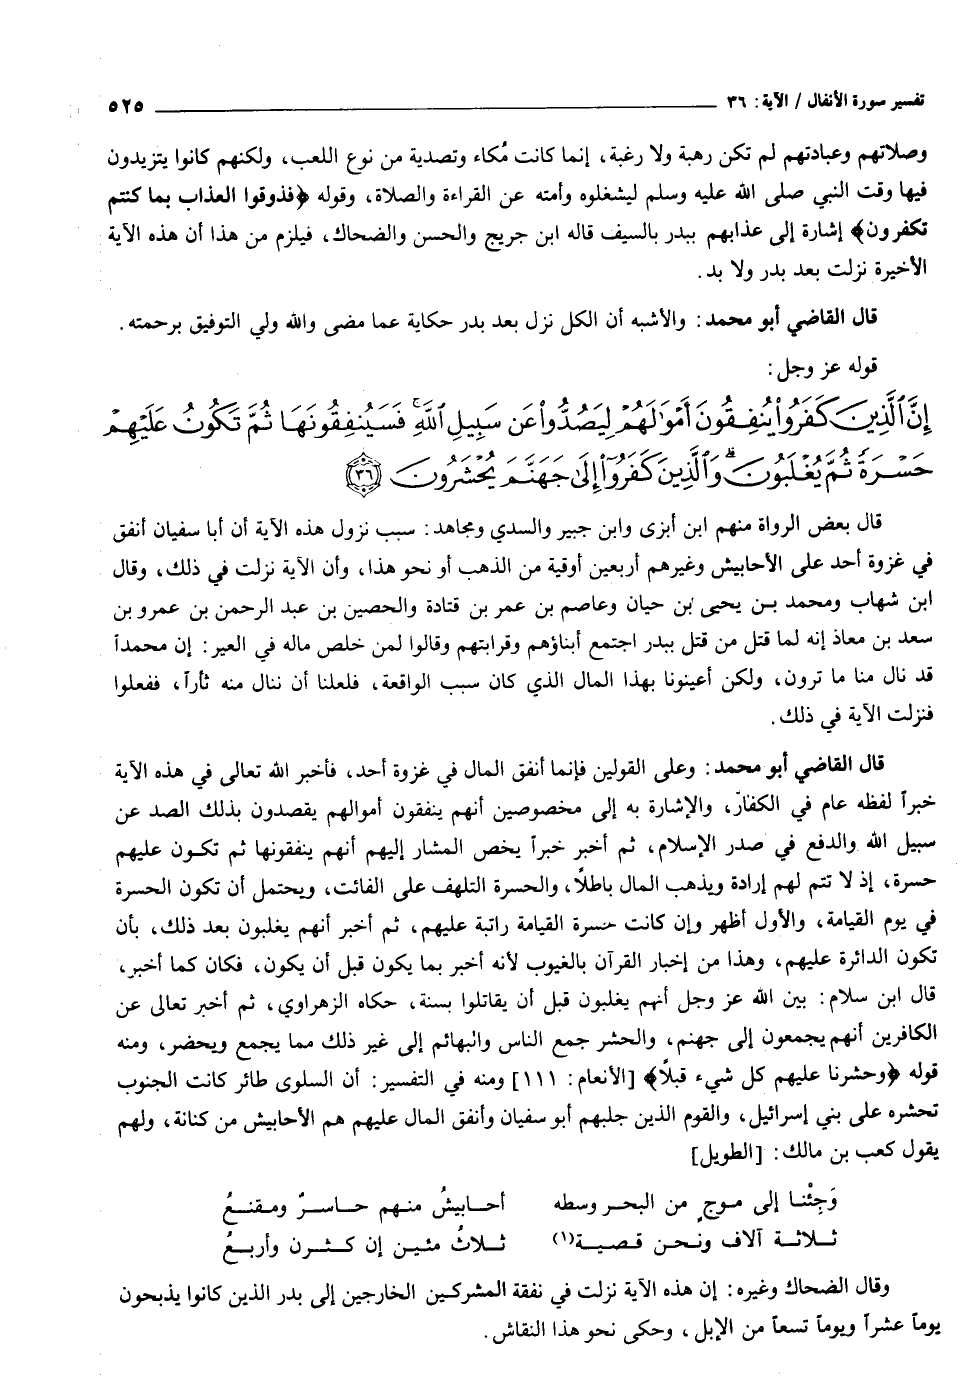 تفسير سورة الأنفال / الآية: ٣٦ ٥٢٥
وصلاتهم وعبادتهم لم تكن رهبة ولا رغبة، إنما كانت مُكاء وتصدية من نوع اللعب، ولكنهم كانوا يتزيدون
فيها وقت النبي صلى الله عليه وسلم ليشغلوه وأمته عن القراءة والصلاة، وقوله ﴿فذوقوا العذاب بما كنتم
تكفرون﴾ إشارة إلى عذابهم ببدر بالسيف قاله ابن جريج والحسن والضحاك، فيلزم من هذا أن هذه الآية
الأخيرة نزلت بعد بدر ولا بد.
قال القاضي أبو محمد: والأشبه أن الكل نزل بعد بدر حكاية عما مضى والله ولي التوفيق برحمته.
قوله عز وجل:
إِنَّ ٱلَّذِينَ كَفَرُواْ يُنفِقُونَ أَمْوَٰلَهُمْ لِيَصُدُّواْ عَن سَبِيلِ ٱللَّهِ ۚ فَسَيُنفِقُونَهَا ثُمَّ تَكُونُ عَلَيْهِمْ
حَسْرَةً ثُمَّ يُغْلَبُونَ ۗ وَٱلَّذِينَ كَفَرُوٓاْ إِلَىٰ جَهَنَّمَ يُحْشَرُونَ ٣٦
قال بعض الرواة منهم ابن أبزى وابن جبير والسدي ومجاهد: سبب نزول هذه الآية أن أبا سفيان أنفق
في غزوة أحد على الأحابيش وغيرهم أربعين أوقية من الذهب أو نحو هذا، وأن الآية نزلت في ذلك، وقال
ابن شهاب ومحمد بن يحيى بن حيان وعاصم بن عمر بن قتادة والحصين بن عبد الرحمن بن عمرو بن
سعد بن معاذ إنه لما قتل من قتل ببدر اجتمع أبناؤهم وقرابتهم وقالوا لمن خلص ماله في العير: إن محمداً
قد نال منا ما ترون، ولكن أعينونا بهذا المال الذي كان سبب الواقعة، فلعلنا أن ننال منه ثأراً، ففعلوا
فنزلت الآية في ذلك.
قال القاضي أبو محمد: وعلى القولين فإنما أنفق المال في غزوة أحد، فأخبر الله تعالى في هذه الآية
خبراً لفظه عام في الكفار، والإشارة به إلى مخصوصين أنهم ينفقون أموالهم يقصدون بذلك الصد عن
سبيل الله والدفع في صدر الإسلام، ثم أخبر خبراً يخص المشار إليهم أنهم ينفقونها ثم تكون عليهم
حسرة، إذ لا تتم لهم إرادة ويذهب المال باطلاً، والحسرة التلهف على الفائت، ويحتمل أن تكون الحسرة
في يوم القيامة، والأول أظهر وإن كانت حسرة القيامة راتبة عليهم، ثم أخبر أنهم يغلبون بعد ذلك، بأن
تكون الدائرة عليهم، وهذا من إخبار القرآن بالغيوب لأنه أخبر بما يكون قبل أن يكون، فكان كما أخبر،
قال ابن سلام: بين الله عز وجل أنهم يغلبون قبل أن يقاتلوا بسنة، حكاه الزهراوي، ثم أخبر تعالى عن
الكافرين أنهم يجمعون إلى جهنم، والحشر جمع الناس والبهائم إلى غير ذلك مما يجمع ويحضر، ومنه
قوله ﴿وحشرنا عليهم كل شيء قبلاً﴾ [الأنعام: ١١١] ومنه في التفسير: أن السلوى طائر كانت الجنوب
تحشره على بني إسرائيل، والقوم الذين جلبهم أبو سفيان وأنفق المال عليهم هم الأحابيش من كنانة، ولهم
يقول كعب بن مالك: [الطويل]
وَجِئْنا إلى موجٍ من البحر وسطه أحابيشُ منهم حاسرٌ ومقنعُ
ثلاثة آلاف ونحن قصية(١) ثلاثُ مئين إن كثرن وأربعُ
وقال الضحاك وغيره: إن هذه الآية نزلت في نفقة المشركين الخارجين إلى بدر الذين كانوا يذبحون
يوماً عشراً ويوماً تسعاً من الإبل، وحكى نحو هذا النقاش.